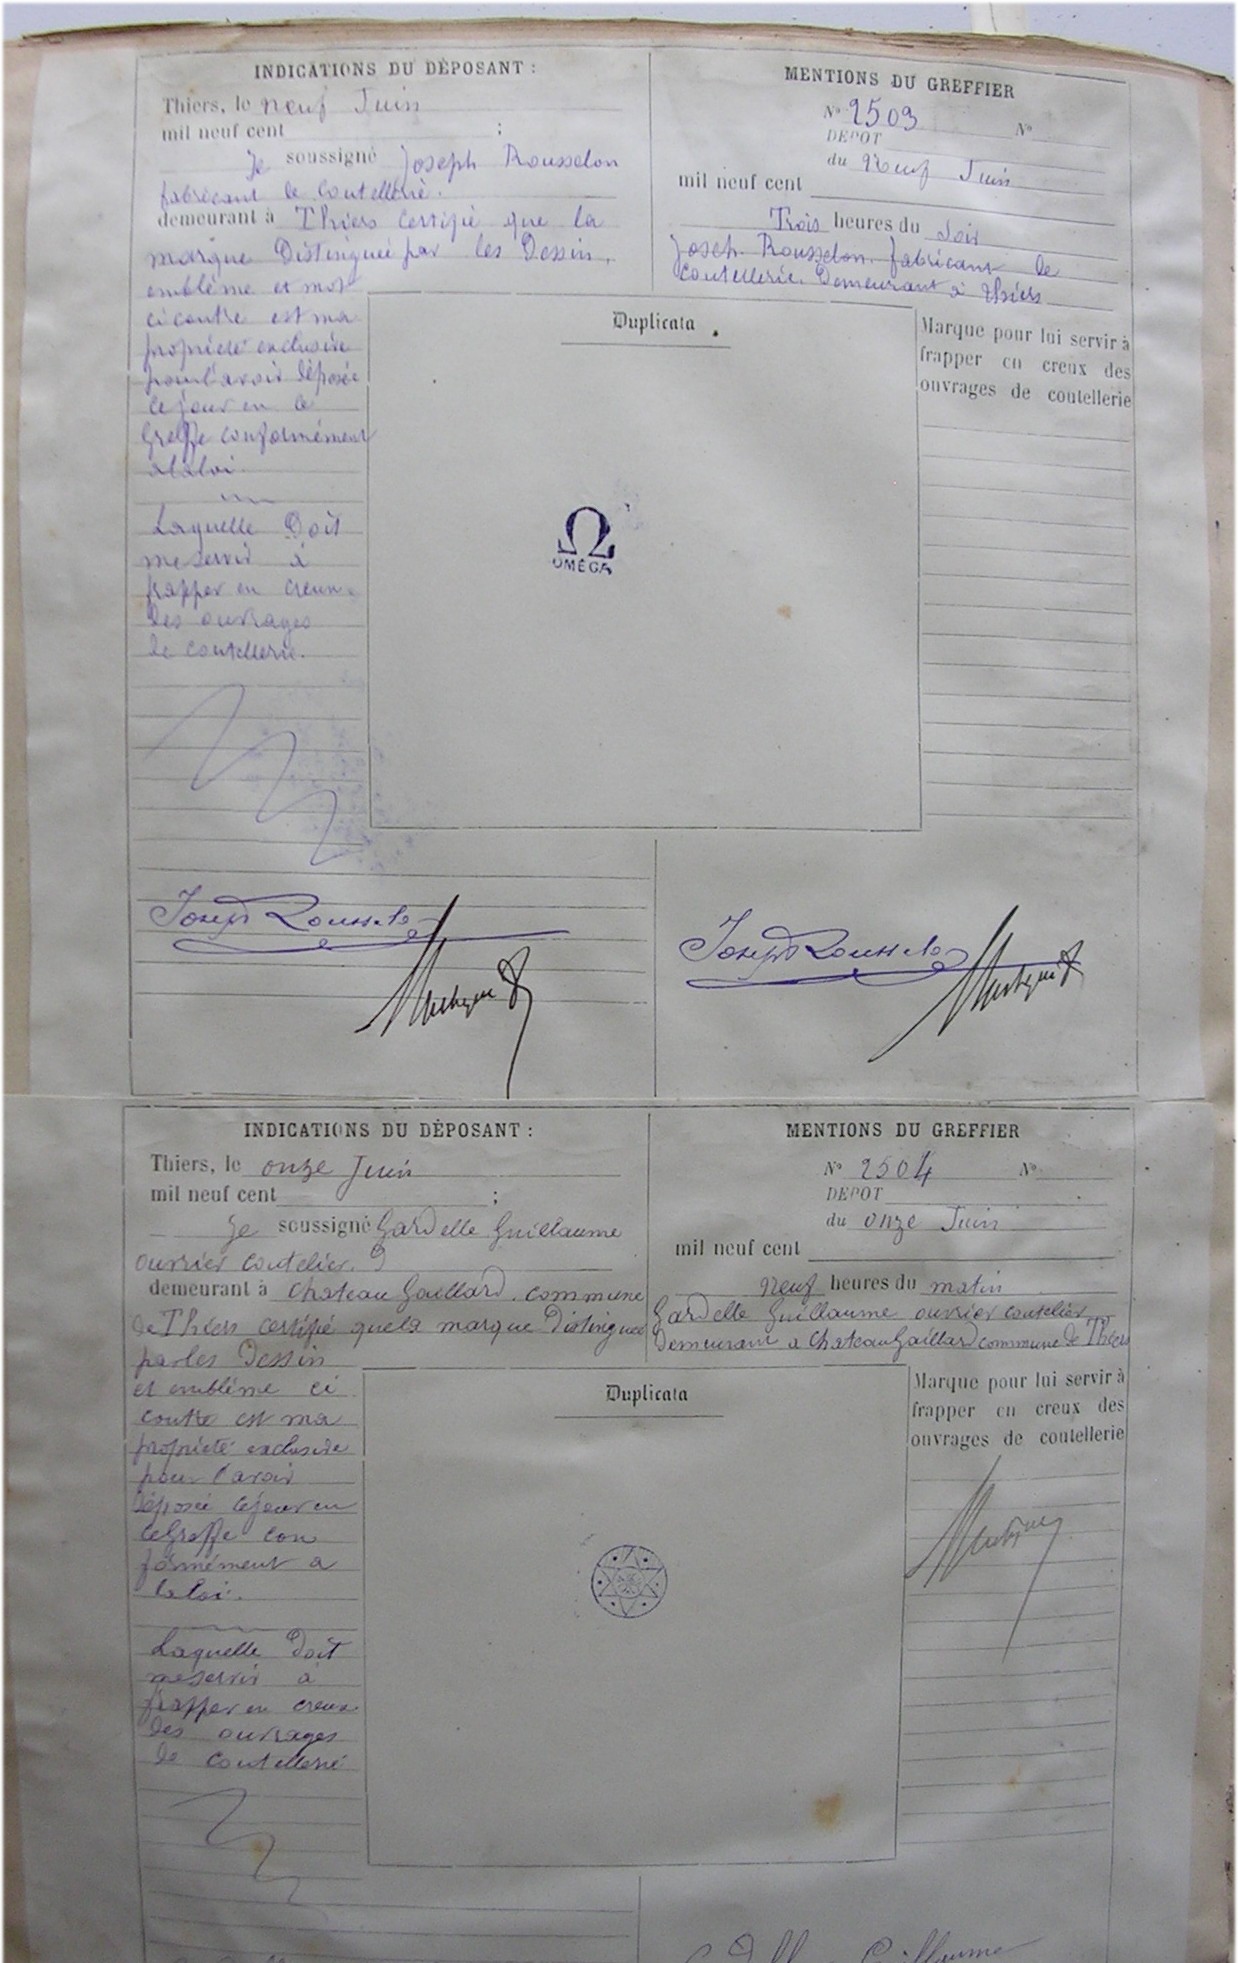 INDICATIONS DU DÉPOSANT :
Thiers, le neuf Juin
mil neuf cent ;
Je soussigné Joseph Rousselon
fabricant de Coutellerie.
demeurant à Thiers Certifie que la
marque Distinguée par les Dessin,
emblême et mot
ci contre est ma
propriété exclusive
pour l'avoir déposée
ce jour en ce
Greffe conformément
a la loi.
Laquelle Doit
me servir à
frapper en creux
des ouvrages
de coutellerie.
MENTIONS DU GREFFIER
N° 2503 N°
DÉPOT
du Neuf Juin
mil neuf cent
Trois heures du Soir
Joseph Rousselon fabricant de
Coutellerie. Demeurant à Thiers
Duplicata
Marque pour lui servir à
frapper en creux des
ouvrages de coutellerie
Ω
OMÉGA
Joseph Rousselon
Joseph Rousselon
INDICATIONS DU DÉPOSANT :
Thiers, le onze Juin
mil neuf cent ;
Je soussigné Gardelle Guillaume
ouvrier coutelier.
demeurant à Chateau Gaillard. commune
de Thiers certifie que la marque Distinguée
par les Dessin
et emblême ci
contre est ma
propriété exclusive
pour l'avoir
déposée ce jour en
ce Greffe con
formément a
la loi.
Laquelle Doit
me servir à
frapper en creux
des ouvrages
de coutellerie
MENTIONS DU GREFFIER
N° 2504 N°
DÉPOT
du onze Juin
mil neuf cent
Neuf heures du matin
Gardelle Guillaume ouvrier coutelier
Demeurant a Chateau Gaillard commune de Thiers
Duplicata
Marque pour lui servir à
frapper en creux des
ouvrages de coutellerie
Guillaume